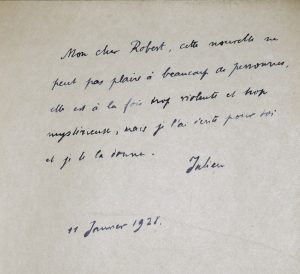 Mon cher Robert, cette nouvelle ne
peut pas plaire à beaucoup de personnes,
elle est à la fois trop violente et trop
mystérieuse, mais je l'ai écrite pour toi
et je te la donne. Julien
11 Janvier 1928.